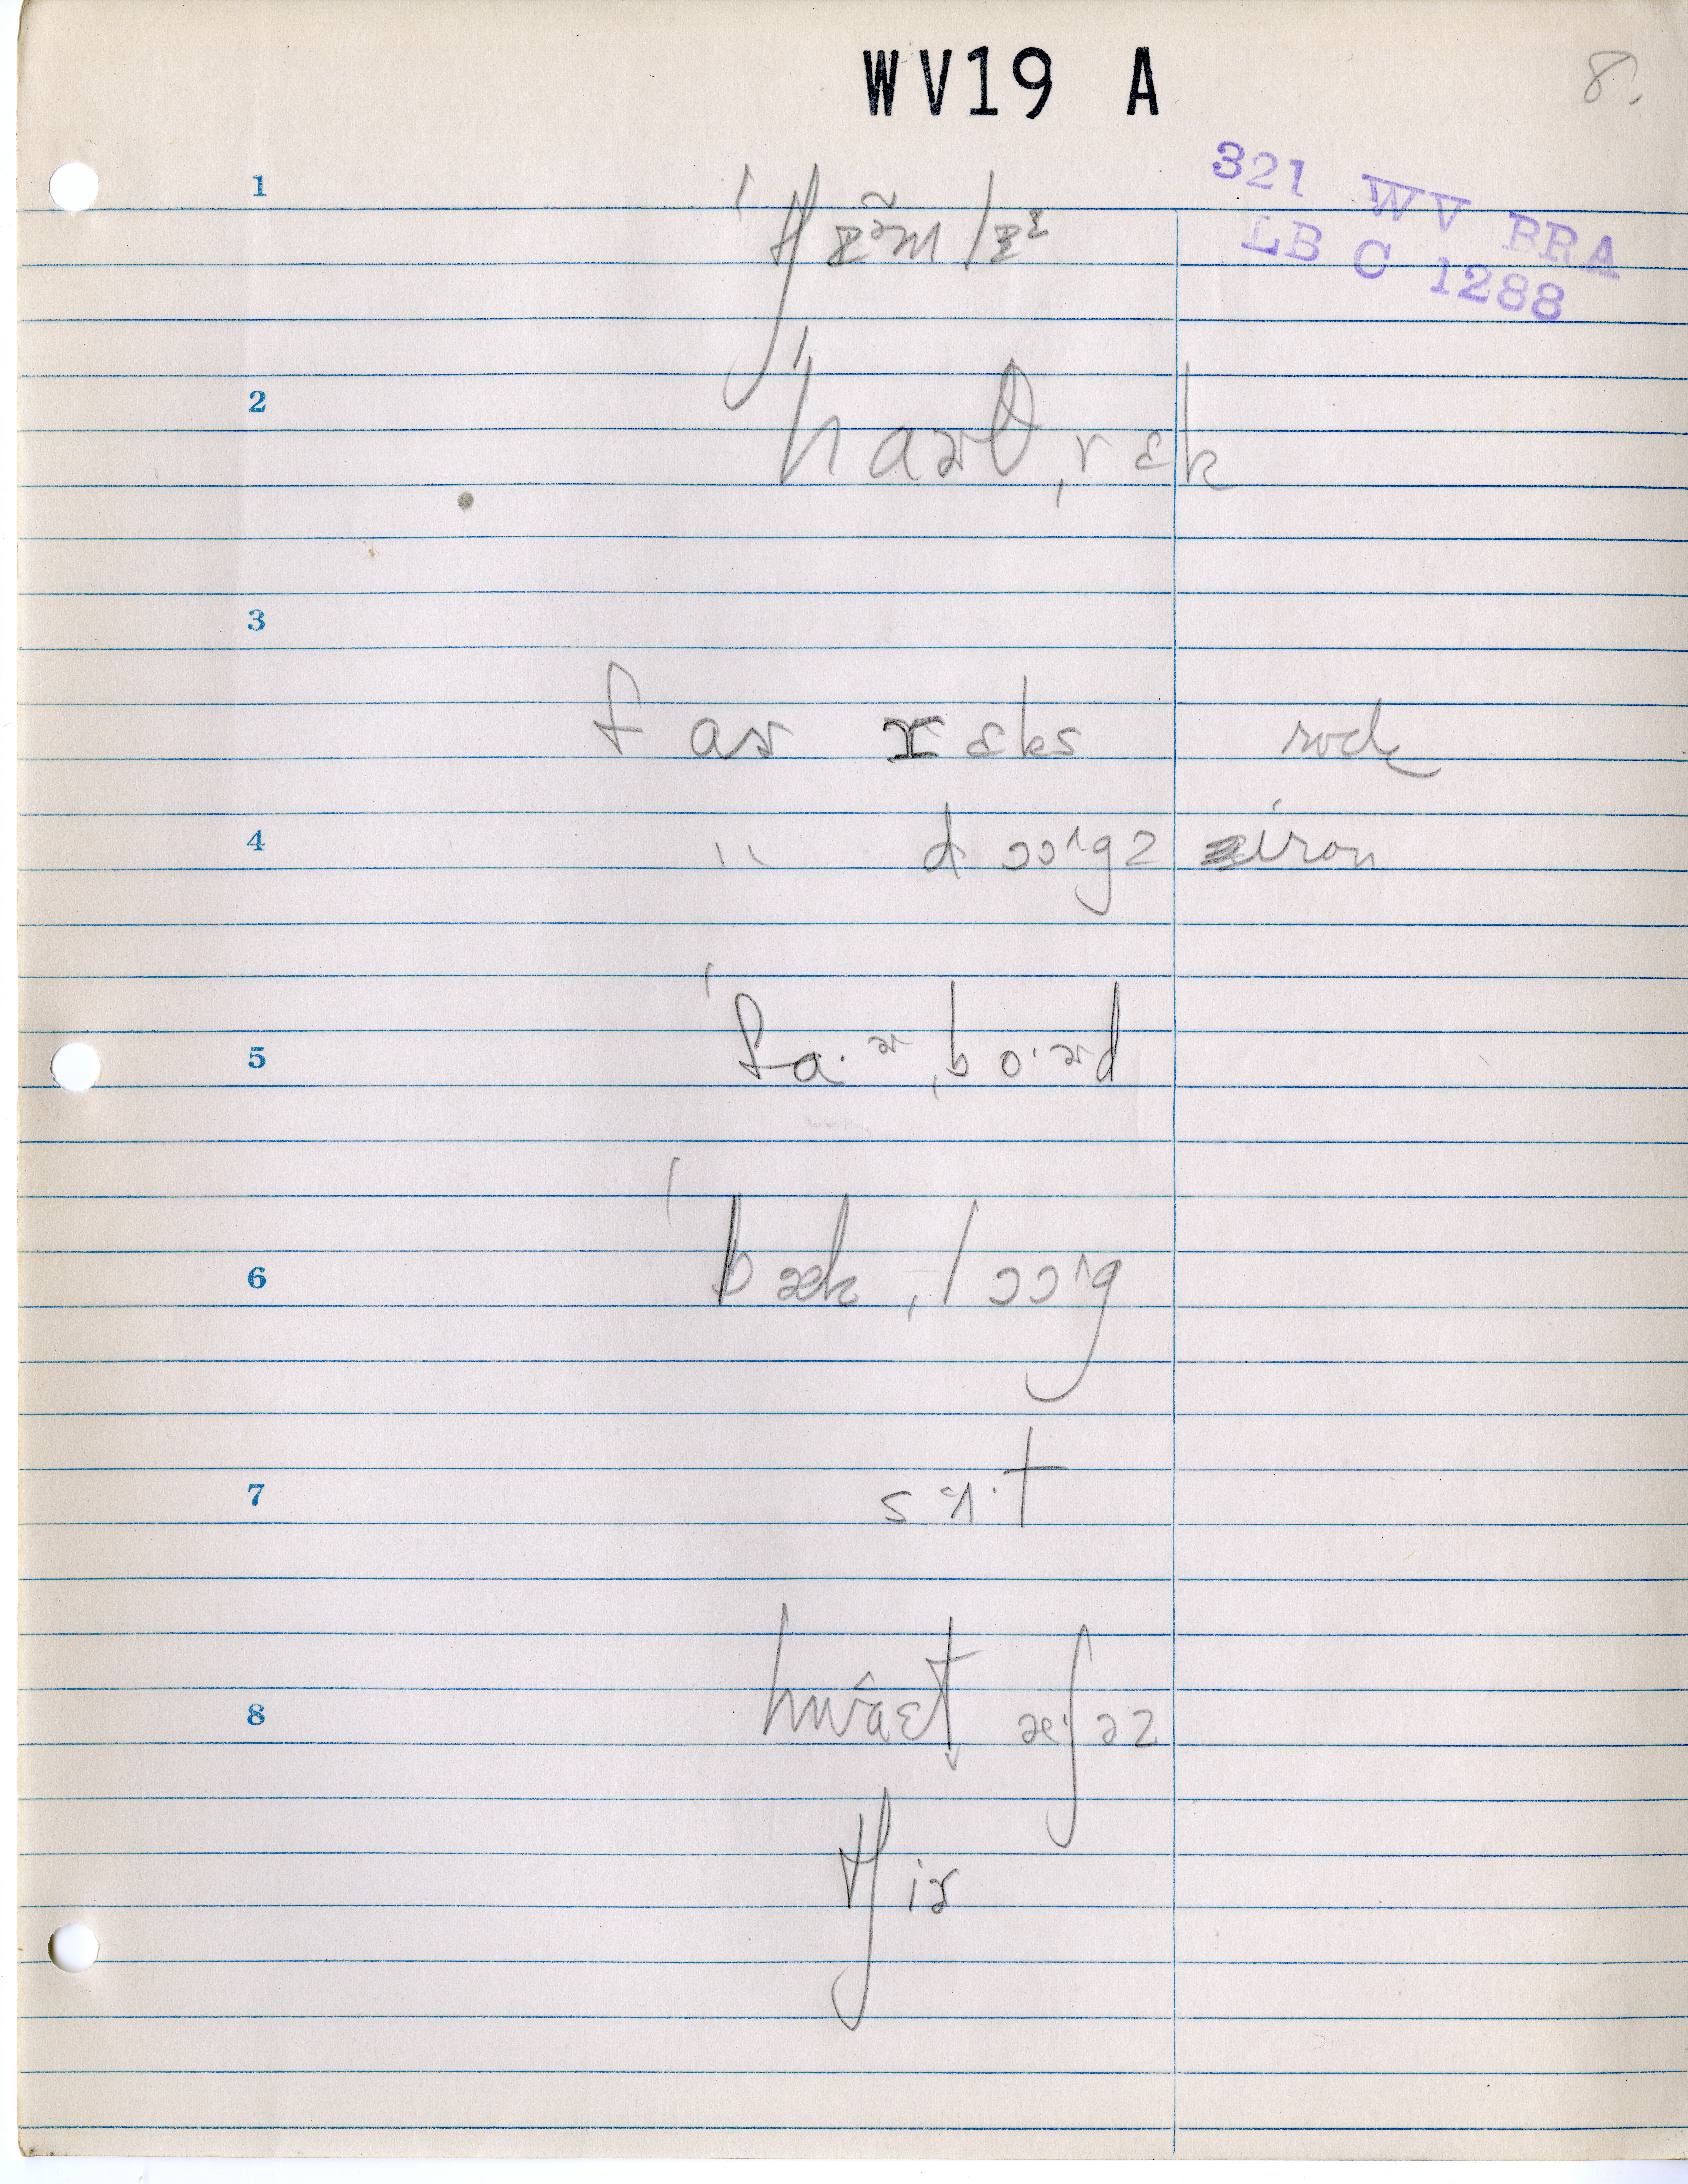 WV19 A
8.
321 WV BRA
LB C 1288
1
2 ˈhaɚθˌrɛk
3
faɚ rɛks rock
4 " dɔɔˡgz iron
5 ˈfa·ɚˌbo·ɚd
6 ˈbækˌlɔɔˡg
7
8 æʃəz
tʃiɚ